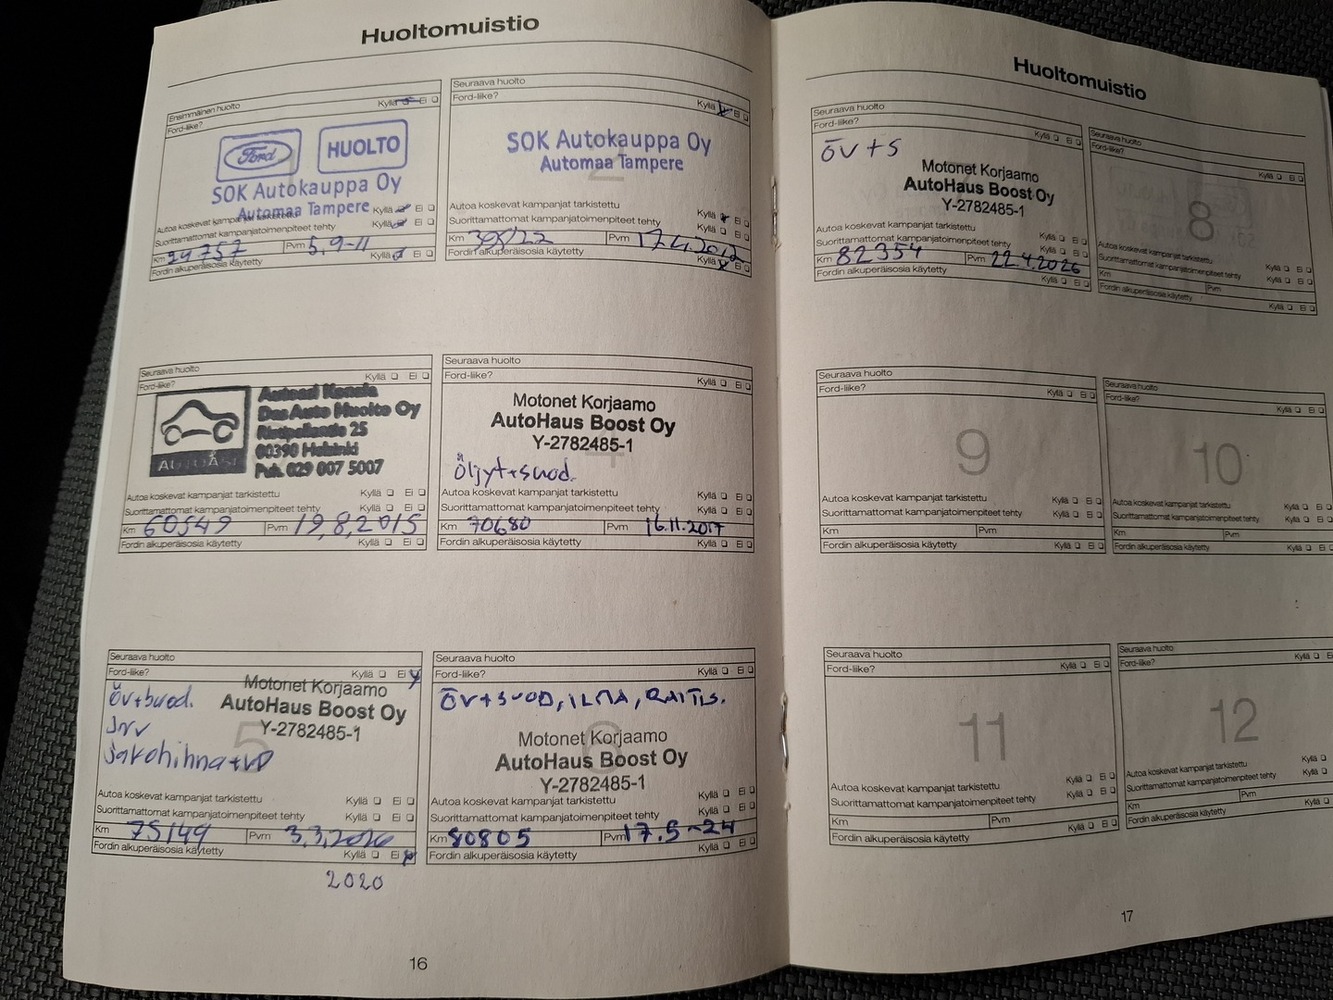 Huoltomuistio
Ensimmäinen huolto
Ford-liike?
Kyllä Ei
Ford HUOLTO
SOK Autokauppa Oy
Automaa Tampere
Autoa koskevat kampanjat tarkistettu
Kyllä Ei
Suorittamattomat kampanjatoimenpiteet tehty
Kyllä Ei
Km 29752 Pvm 5.9-11
Fordin alkuperäisosia käytetty
Kyllä Ei
Seuraava huolto
Ford-liike?
Kyllä Ei
2
SOK Autokauppa Oy
Automaa Tampere
Autoa koskevat kampanjat tarkistettu
Kyllä Ei
Suorittamattomat kampanjatoimenpiteet tehty
Kyllä Ei
Km Pvm 17.4.2012
Fordin alkuperäisosia käytetty
Kyllä Ei
Seuraava huolto
Ford-liike?
Kyllä Ei
AUTOASI
Autoasi Konala
Das Auto Huolto Oy
Ristipellontie 25
00390 Helsinki
Puh. 029 007 5007
Autoa koskevat kampanjat tarkistettu
Kyllä Ei
Suorittamattomat kampanjatoimenpiteet tehty
Kyllä Ei
Km 60549 Pvm 19,8,2015
Fordin alkuperäisosia käytetty
Kyllä Ei
Seuraava huolto
Ford-liike?
Kyllä Ei
4
Motonet Korjaamo
AutoHaus Boost Oy
Y-2782485-1
Öljyt+suod.
Autoa koskevat kampanjat tarkistettu
Kyllä Ei
Suorittamattomat kampanjatoimenpiteet tehty
Kyllä Ei
Km 70680 Pvm 16.11.2017
Fordin alkuperäisosia käytetty
Kyllä Ei
Seuraava huolto
Ford-liike?
Kyllä Ei
5
Motonet Korjaamo
AutoHaus Boost Oy
Y-2782485-1
Öv+suod.
JNV
Jakohihna+VP
Autoa koskevat kampanjat tarkistettu
Kyllä Ei
Suorittamattomat kampanjatoimenpiteet tehty
Kyllä Ei
Km 75149 Pvm 3.3.2020
Fordin alkuperäisosia käytetty
Kyllä Ei
2020
Seuraava huolto
Ford-liike?
Kyllä Ei
6
ÖV+SUOD, ILMA, RAITIS.
Motonet Korjaamo
AutoHaus Boost Oy
Y-2782485-1
Autoa koskevat kampanjat tarkistettu
Kyllä Ei
Suorittamattomat kampanjatoimenpiteet tehty
Kyllä Ei
Km 80805 Pvm 17.5-24
Fordin alkuperäisosia käytetty
Kyllä Ei
16
Huoltomuistio
Seuraava huolto
Ford-liike?
Kyllä Ei
ÖV+S
Motonet Korjaamo
AutoHaus Boost Oy
Y-2782485-1
Autoa koskevat kampanjat tarkistettu
Kyllä Ei
Suorittamattomat kampanjatoimenpiteet tehty
Kyllä Ei
Km 82354 Pvm 22.4.2026
Fordin alkuperäisosia käytetty
Kyllä Ei
Seuraava huolto
Ford-liike?
Kyllä Ei
8
Autoa koskevat kampanjat tarkistettu
Kyllä Ei
Suorittamattomat kampanjatoimenpiteet tehty
Kyllä Ei
Km Pvm
Fordin alkuperäisosia käytetty
Kyllä Ei
Seuraava huolto
Ford-liike?
Kyllä Ei
9
Autoa koskevat kampanjat tarkistettu
Kyllä Ei
Suorittamattomat kampanjatoimenpiteet tehty
Kyllä Ei
Km Pvm
Fordin alkuperäisosia käytetty
Kyllä Ei
Seuraava huolto
Ford-liike?
Kyllä Ei
10
Autoa koskevat kampanjat tarkistettu
Kyllä Ei
Suorittamattomat kampanjatoimenpiteet tehty
Kyllä Ei
Km Pvm
Fordin alkuperäisosia käytetty
Kyllä Ei
Seuraava huolto
Ford-liike?
Kyllä Ei
11
Autoa koskevat kampanjat tarkistettu
Kyllä Ei
Suorittamattomat kampanjatoimenpiteet tehty
Kyllä Ei
Km Pvm
Fordin alkuperäisosia käytetty
Kyllä Ei
Seuraava huolto
Ford-liike?
Kyllä Ei
12
Autoa koskevat kampanjat tarkistettu
Kyllä
Suorittamattomat kampanjatoimenpiteet tehty
Kyllä
Km Pvm
Fordin alkuperäisosia käytetty
Kyllä
17